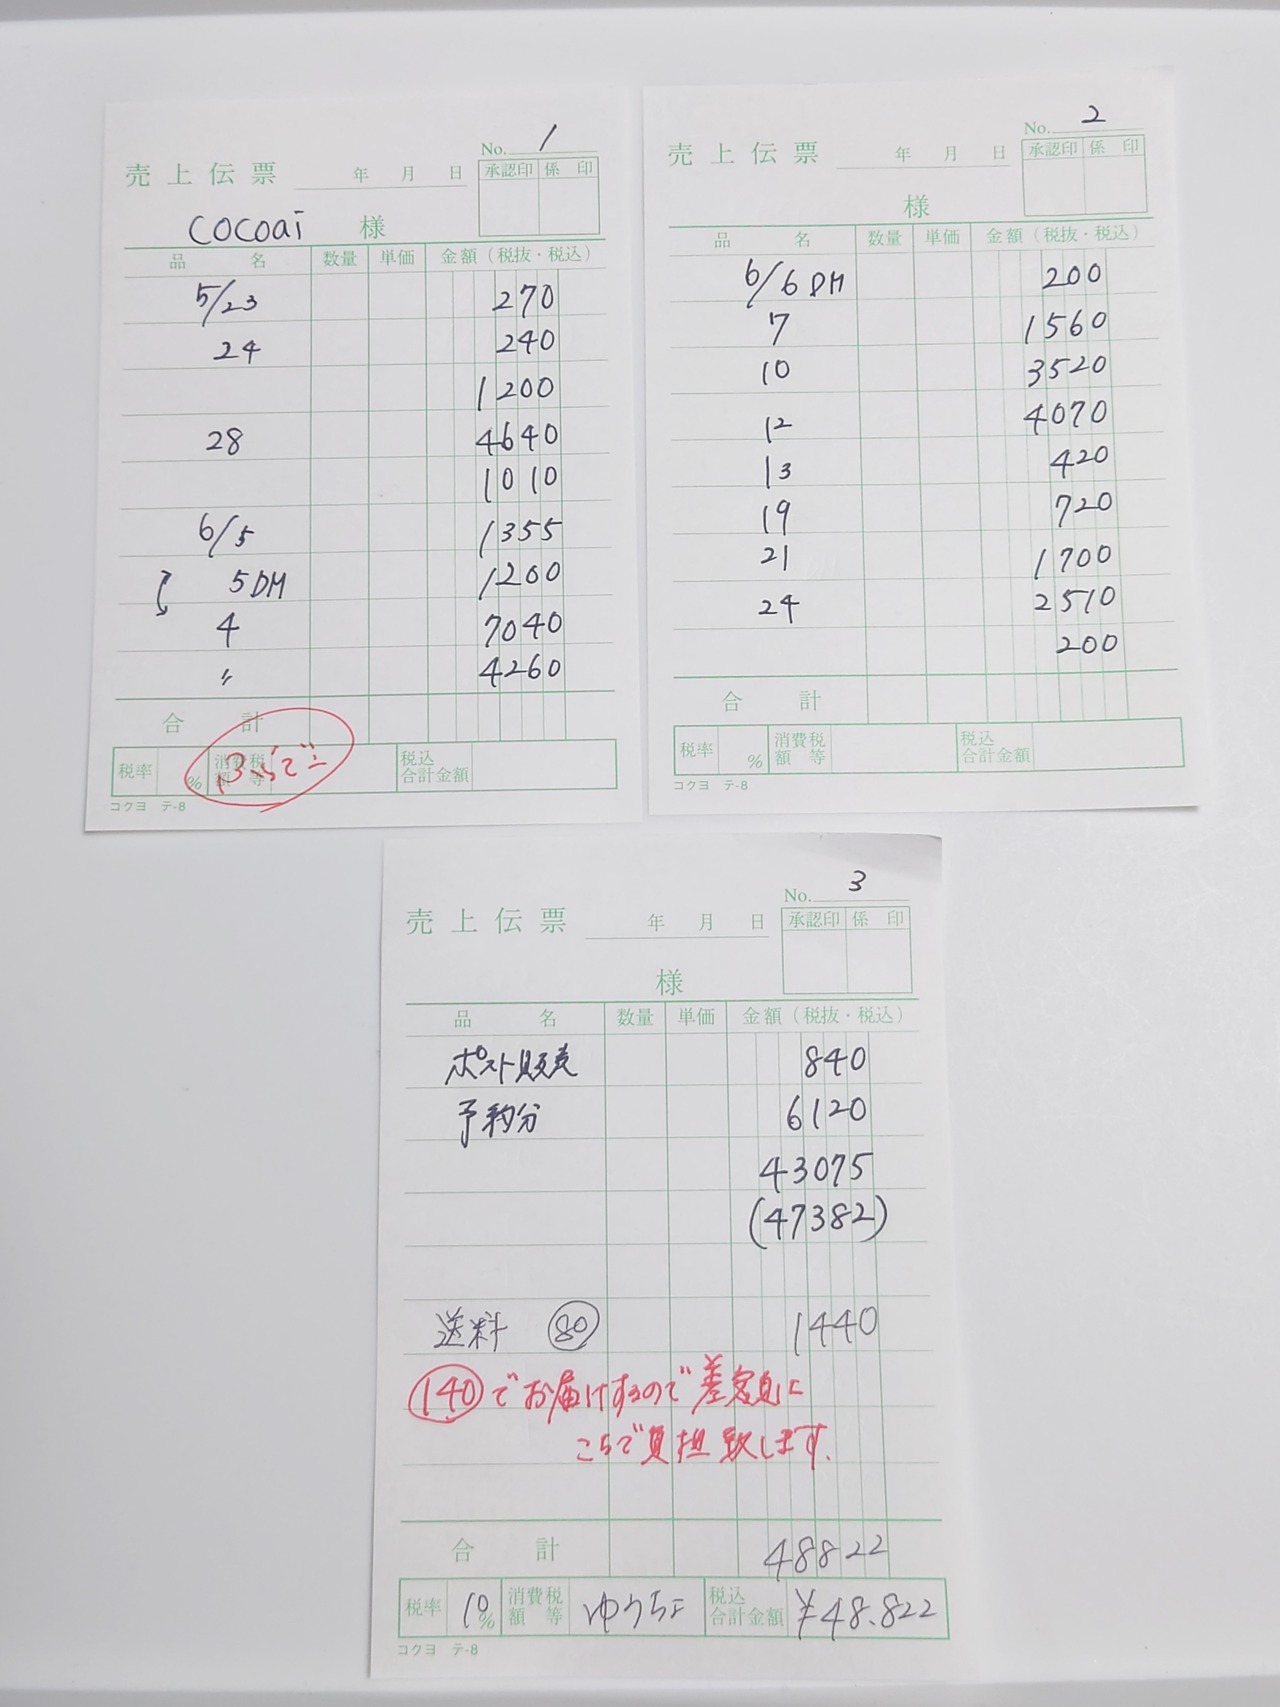 No. 1
売上伝票 年 月 日
承認印 係 印
cocoai 様
品 名 数量 単価 金額（税抜・税込）
5/23 270
24 240
1200
28 4640
1010
6/5 1355
5DM 1200
4 7040
〃 4260
合 計
税率 % 消費税額等 税込合計金額
コクヨ テ-8
No. 2
売上伝票 年 月 日
承認印 係 印
様
品 名 数量 単価 金額（税抜・税込）
6/6 DM 200
7 1560
10 3520
12 4070
13 420
19 720
21 1700
24 2510
200
合 計
税率 % 消費税額等 税込合計金額
コクヨ テ-8
No. 3
売上伝票 年 月 日
承認印 係 印
様
品 名 数量 単価 金額（税抜・税込）
ポスト販売 840
予約分 6120
43075
(47382)
送料 80 1440
140でお届けするので差額は
こちらで負担致します.
合 計 48822
税率 10% 消費税額等 ゆうちょ 税込合計金額 ¥48.822
コクヨ テ-8